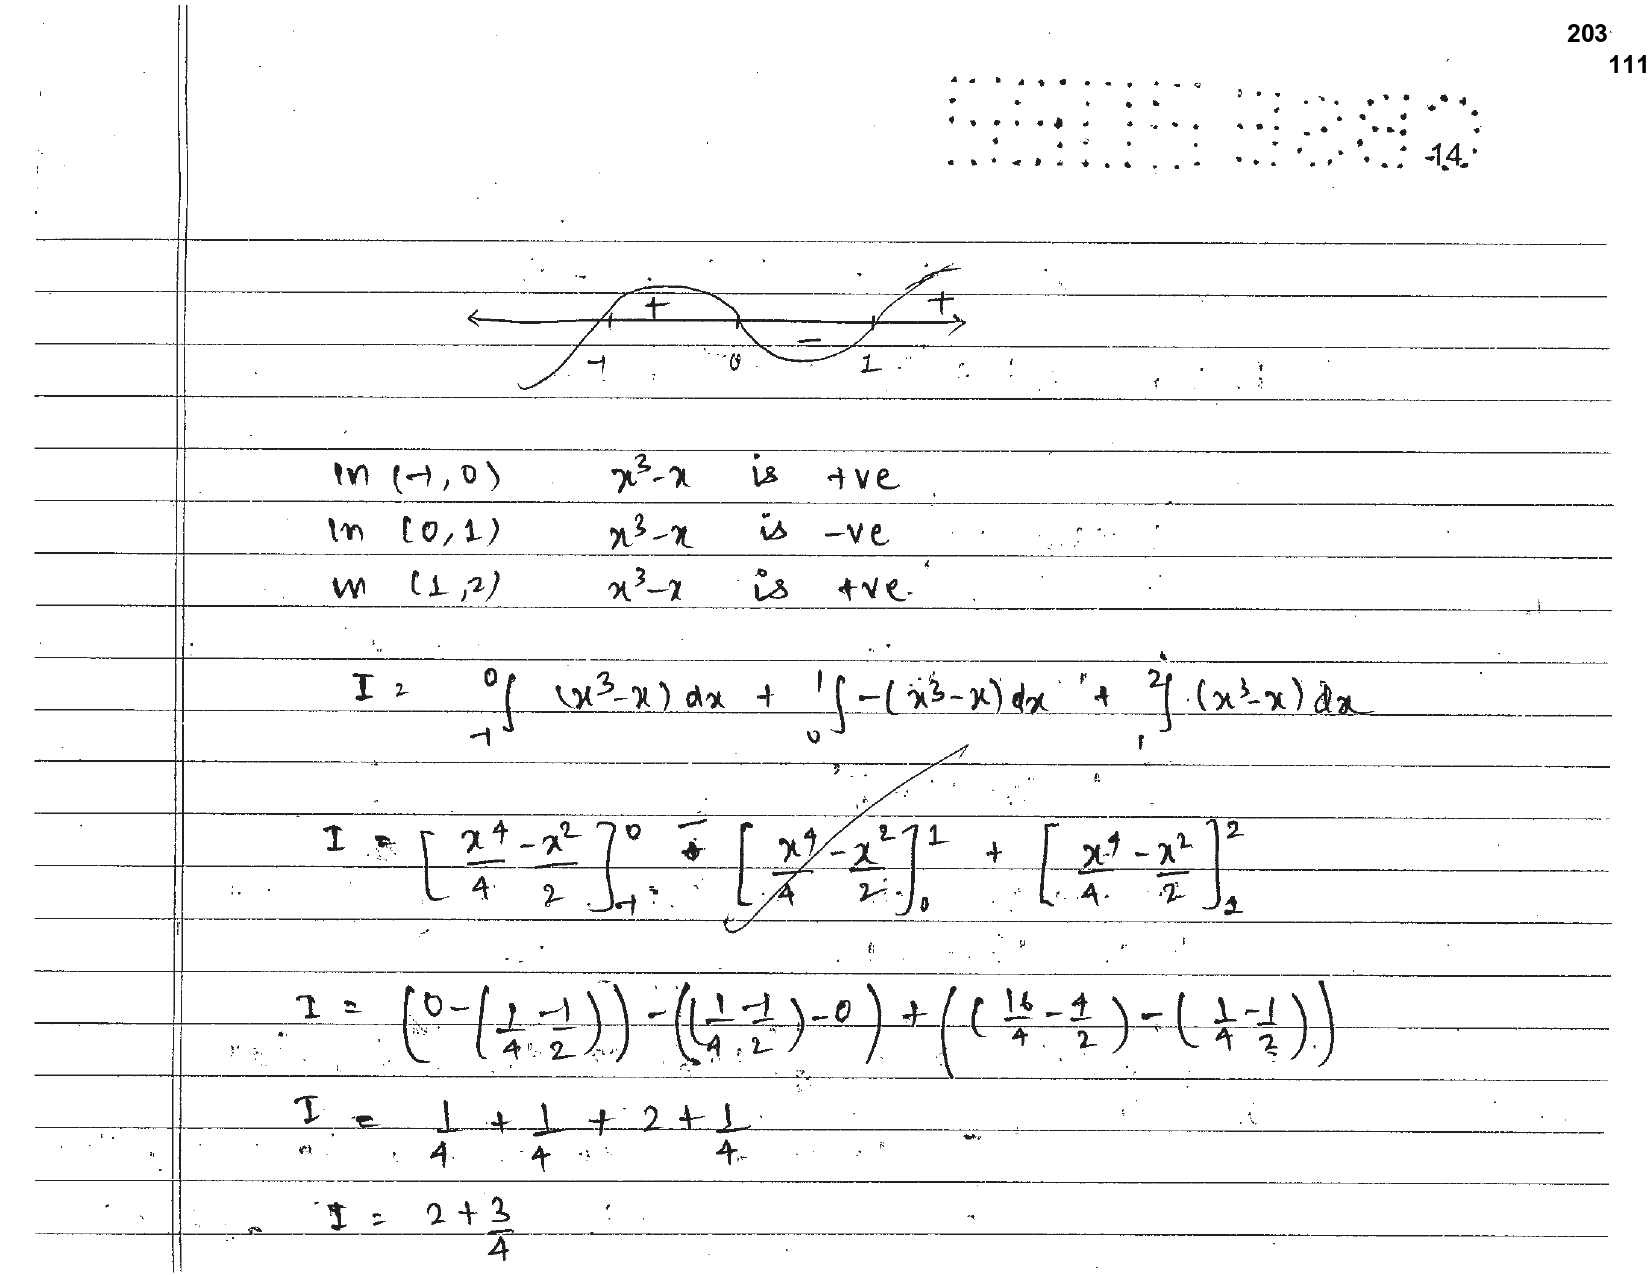 203
111
14
+ - +
-1 0 1
In (-1, 0) x³-x is +ve
In (0, 1) x³-x is -ve
In (1, 2) x³-x is +ve.
I = ₋₁⁰∫ (x³-x) dx + ₀¹∫ -(x³-x) dx + ₁²∫ (x³-x) dx
I = [x⁴/4 - x²/2]₋₁⁰ - [x⁴/4 - x²/2]₀¹ + [x⁴/4 - x²/2]₁²
I = (0-(1/4 - 1/2)) - ((1/4 - 1/2)-0) + ((16/4 - 4/2) - (1/4 - 1/2))
I = 1/4 + 1/4 + 2 + 1/4
I = 2 + 3/4